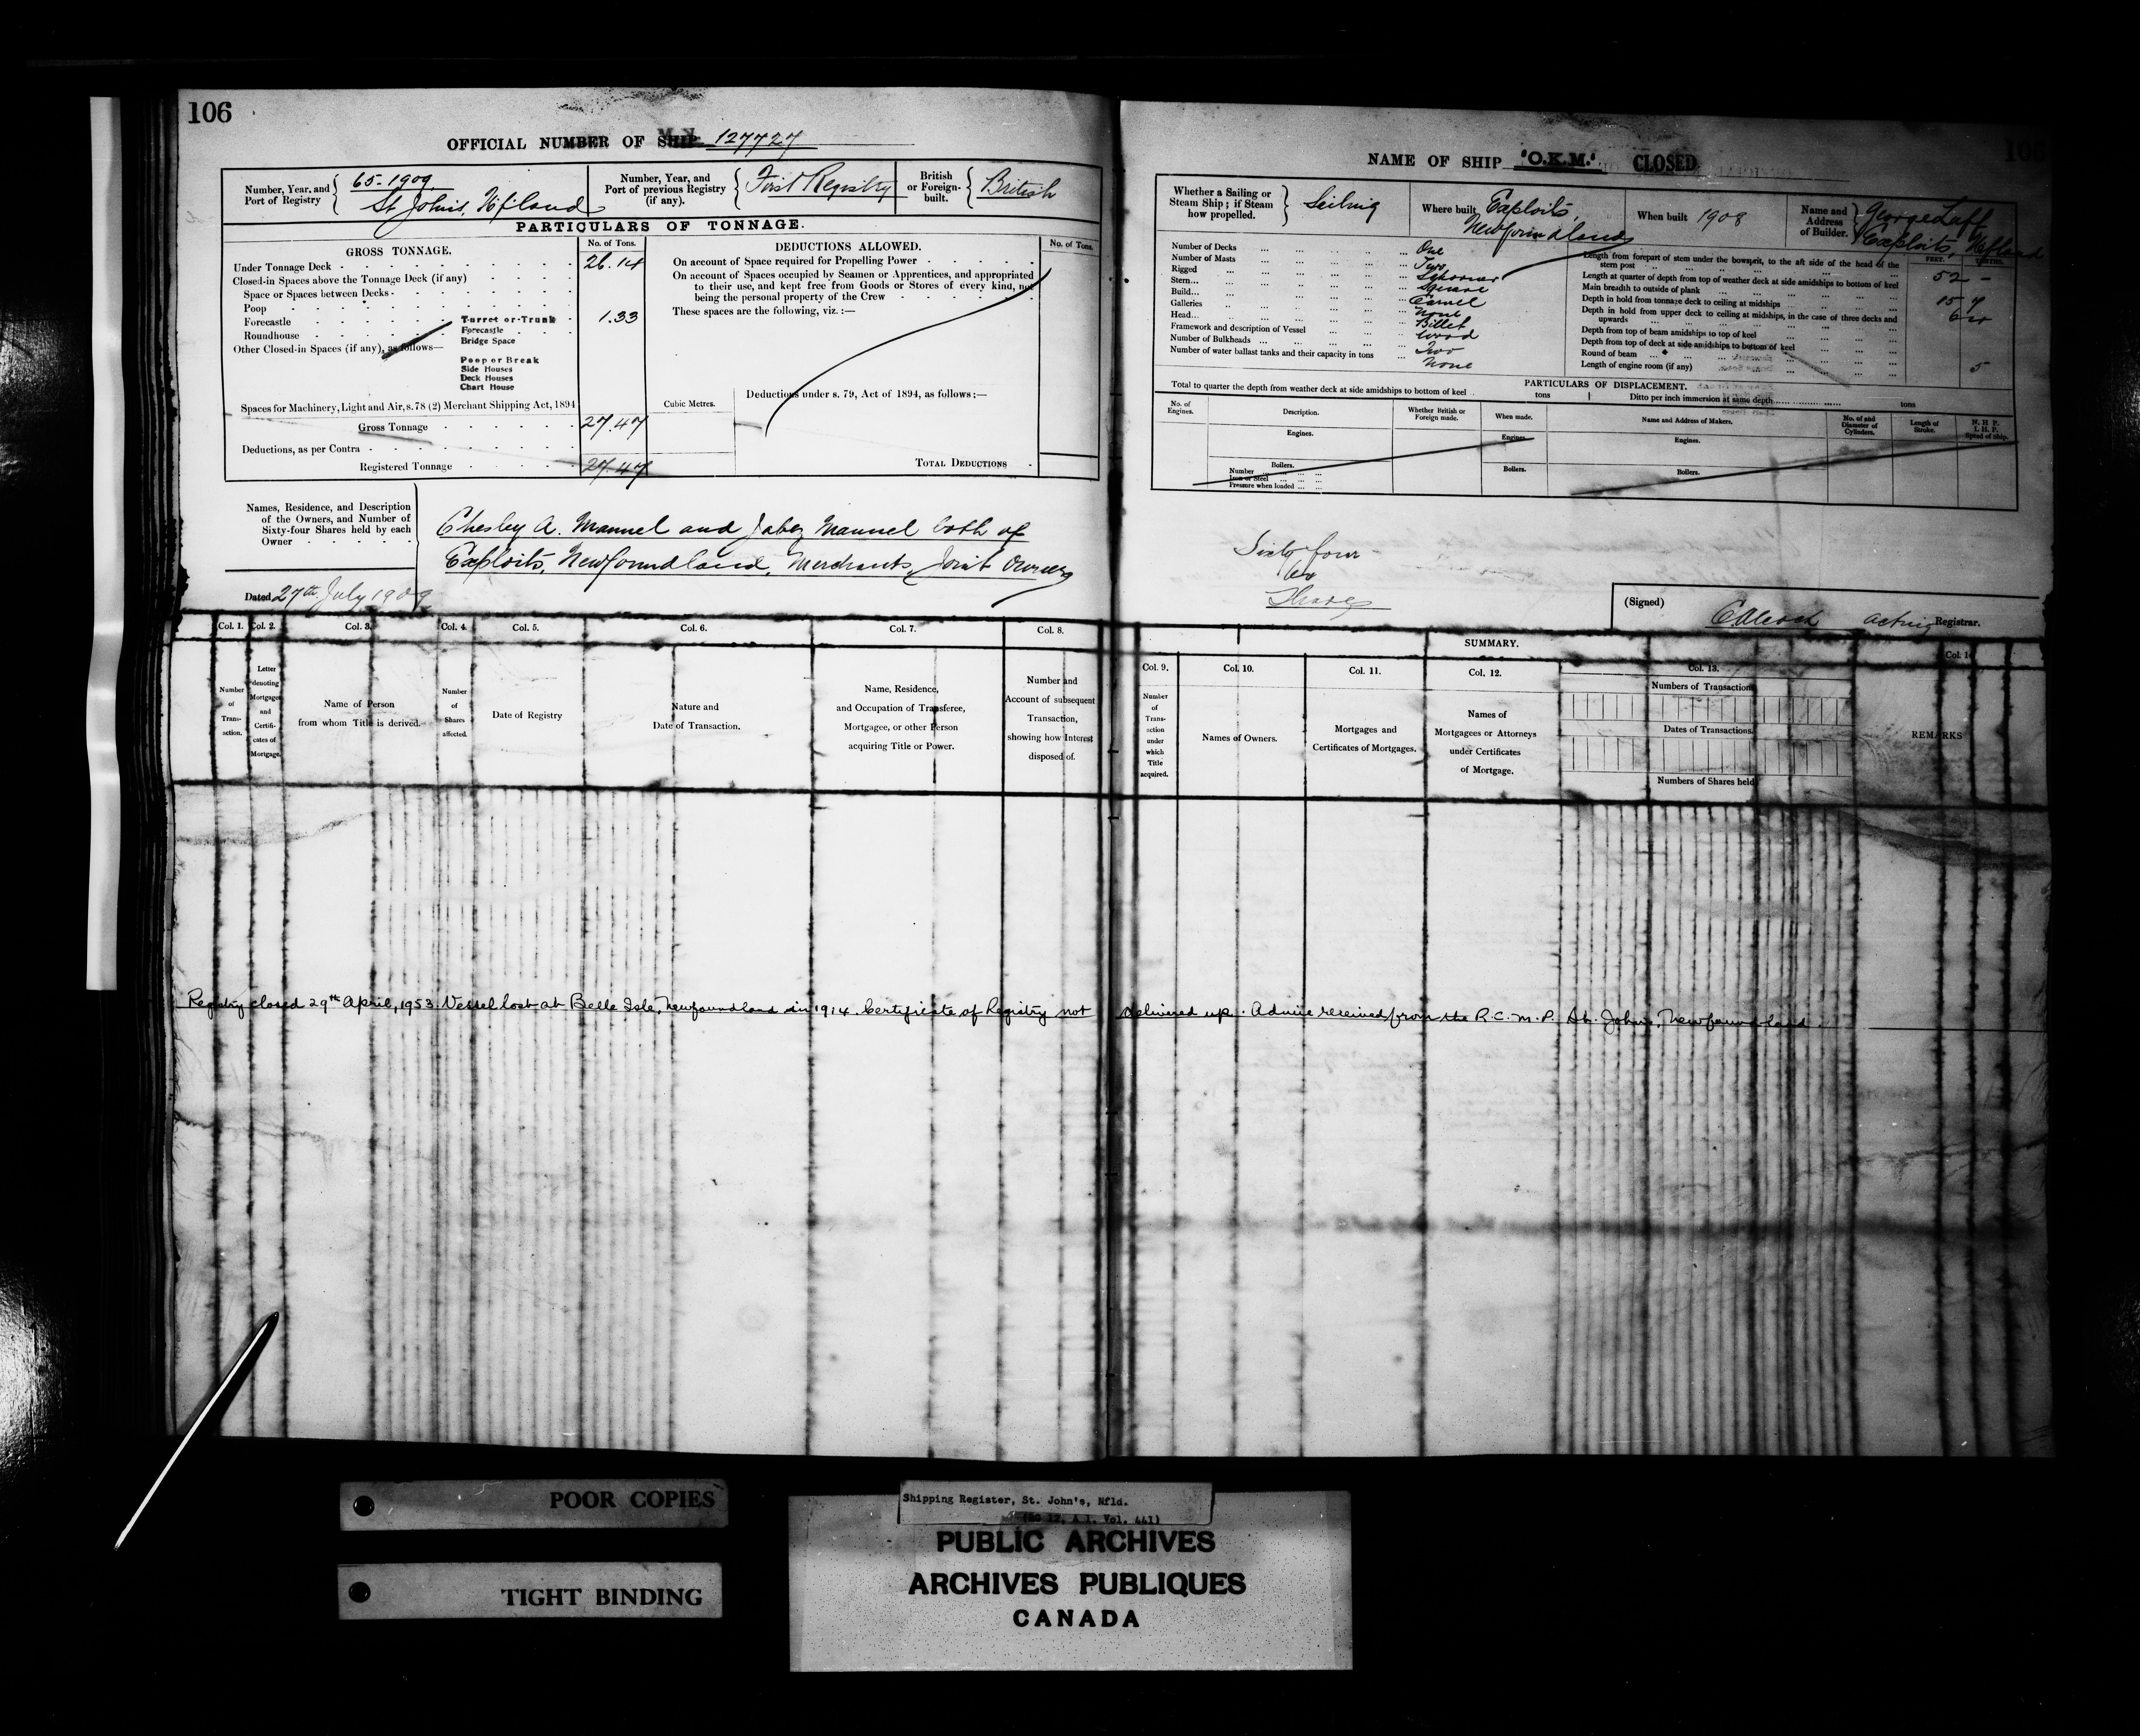 106
OFFICIAL NUMBER OF SHIP 127727
Number, Year, and Port of Registry
65-1909
St John's, Nfland
Number, Year, and Port of previous Registry (if any).
First Registry
British or Foreign-built.
British
PARTICULARS OF TONNAGE.
GROSS TONNAGE.
No. of Tons.
Under Tonnage Deck 26.14
Closed-in Spaces above the Tonnage Deck (if any)
Space or Spaces between Decks
Poop
Forecastle
Roundhouse
Other Closed-in Spaces (if any), as follows—
Turret or Trunk 1.33
Forecastle
Bridge Space
Poop or Break
Side Houses
Deck Houses
Chart House
Spaces for Machinery, Light and Air, s. 78 (2) Merchant Shipping Act, 1894
Gross Tonnage 27.47
Deductions, as per Contra
Registered Tonnage 27.47
DEDUCTIONS ALLOWED.
No. of Tons.
On account of Space required for Propelling Power
On account of Spaces occupied by Seamen or Apprentices, and appropriated
to their use, and kept free from Goods or Stores of every kind, not
being the personal property of the Crew
These spaces are the following, viz.:—
Cubic Metres.
Deductions under s. 79, Act of 1894, as follows:—
TOTAL DEDUCTIONS
Names, Residence, and Description
of the Owners, and Number of
Sixty-four Shares held by each
Owner
Chesley A. Manuel and Jabez Manuel both of
Exploits, Newfoundland, Merchants, Joint Owners
Dated 27th July 1909
Col. 1. Col. 2. Col. 3. Col. 4. Col. 5. Col. 6. Col. 7. Col. 8.
Number of Transaction.
Letter denoting Mortgages and Certificates of Mortgage.
Name of Person from whom Title is derived.
Number of Shares affected.
Date of Registry
Nature and Date of Transaction.
Name, Residence, and Occupation of Transferee, Mortgagee, or other Person acquiring Title or Power.
Number and Account of subsequent Transaction, showing how Interest disposed of.
NAME OF SHIP "O.K.M." CLOSED
106
Whether a Sailing or Steam Ship; if Steam how propelled.
Sailing
Where built Exploits, Newfoundland
When built 1908
Name and Address of Builder.
George Luff
Exploits, Nfland
Number of Decks One
Number of Masts Two
Rigged Schooner
Stern Square
Build Carvel
Galleries None
Head Billet
Framework and description of Vessel Wood
Number of Bulkheads Two
Number of water ballast tanks and their capacity in tons None
FEET. TENTHS.
Length from forepart of stem under the bowsprit, to the aft side of the head of the stern post 52 -
Length at quarter of depth from top of weather deck at side amidships to bottom of keel
Main breadth to outside of plank 15 7
Depth in hold from tonnage deck to ceiling at midships
Depth in hold from upper deck to ceiling at midships, in the case of three decks and upwards
Depth from top of beam amidships to top of keel
Depth from top of deck at side amidships to bottom of keel
Round of beam 5
Length of engine room (if any)
PARTICULARS OF DISPLACEMENT.
Total to quarter the depth from weather deck at side amidships to bottom of keel tons
Ditto per inch immersion at same depth tons
No. of Engines.
Description.
Whether British or Foreign made.
When made.
Name and Address of Makers.
No. of and Diameter of Cylinders.
Length of Stroke.
N. H. P.
I. H. P.
Speed of ship.
Engines. Engines. Engines.
Boilers. Boilers. Boilers.
Number
Iron or Steel
Pressure when loaded
Sixty four
Shares
(Signed) acting Registrar.
SUMMARY.
Col. 9. Col. 10. Col. 11. Col. 12. Col. 13. Col. 14
Number of Transaction under which Title acquired.
Names of Owners.
Mortgages and Certificates of Mortgages.
Names of Mortgagees or Attorneys under Certificates of Mortgage.
Numbers of Transactions
Dates of Transactions.
Numbers of Shares held
REMARKS
Registry closed 29th April, 1953. Vessel lost at Belle Isle, Newfoundland in 1914. Certificate of Registry not delivered up. Advice received from the R.C.M.P. St. John's, Newfoundland.
POOR COPIES
TIGHT BINDING
Shipping Register, St. John's, Nfld.
(RG 12, A 1, Vol. 441)
PUBLIC ARCHIVES
ARCHIVES PUBLIQUES
CANADA